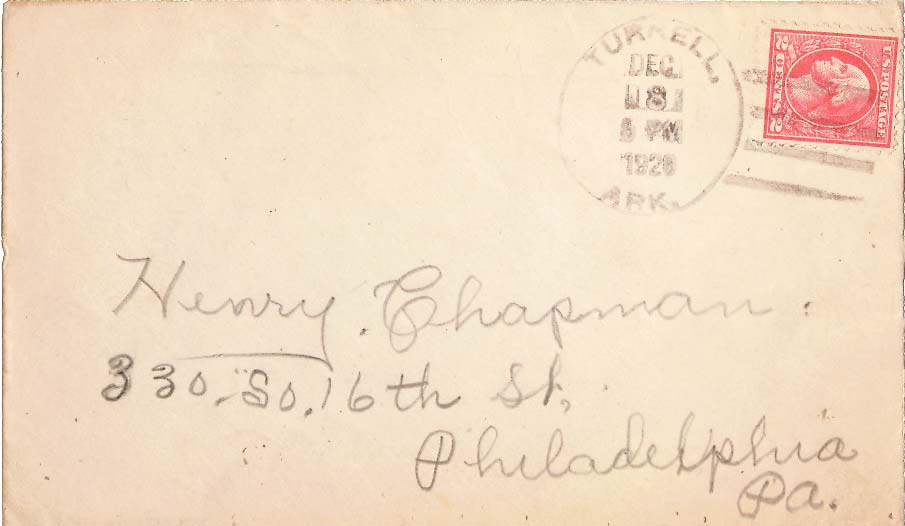 TURRELL,
DEC
8
PM
ARK.
U.S. POSTAGE
2 CENTS 2
Henry Chapman.
330. So. 16th St.
Philadelphia
Pa.